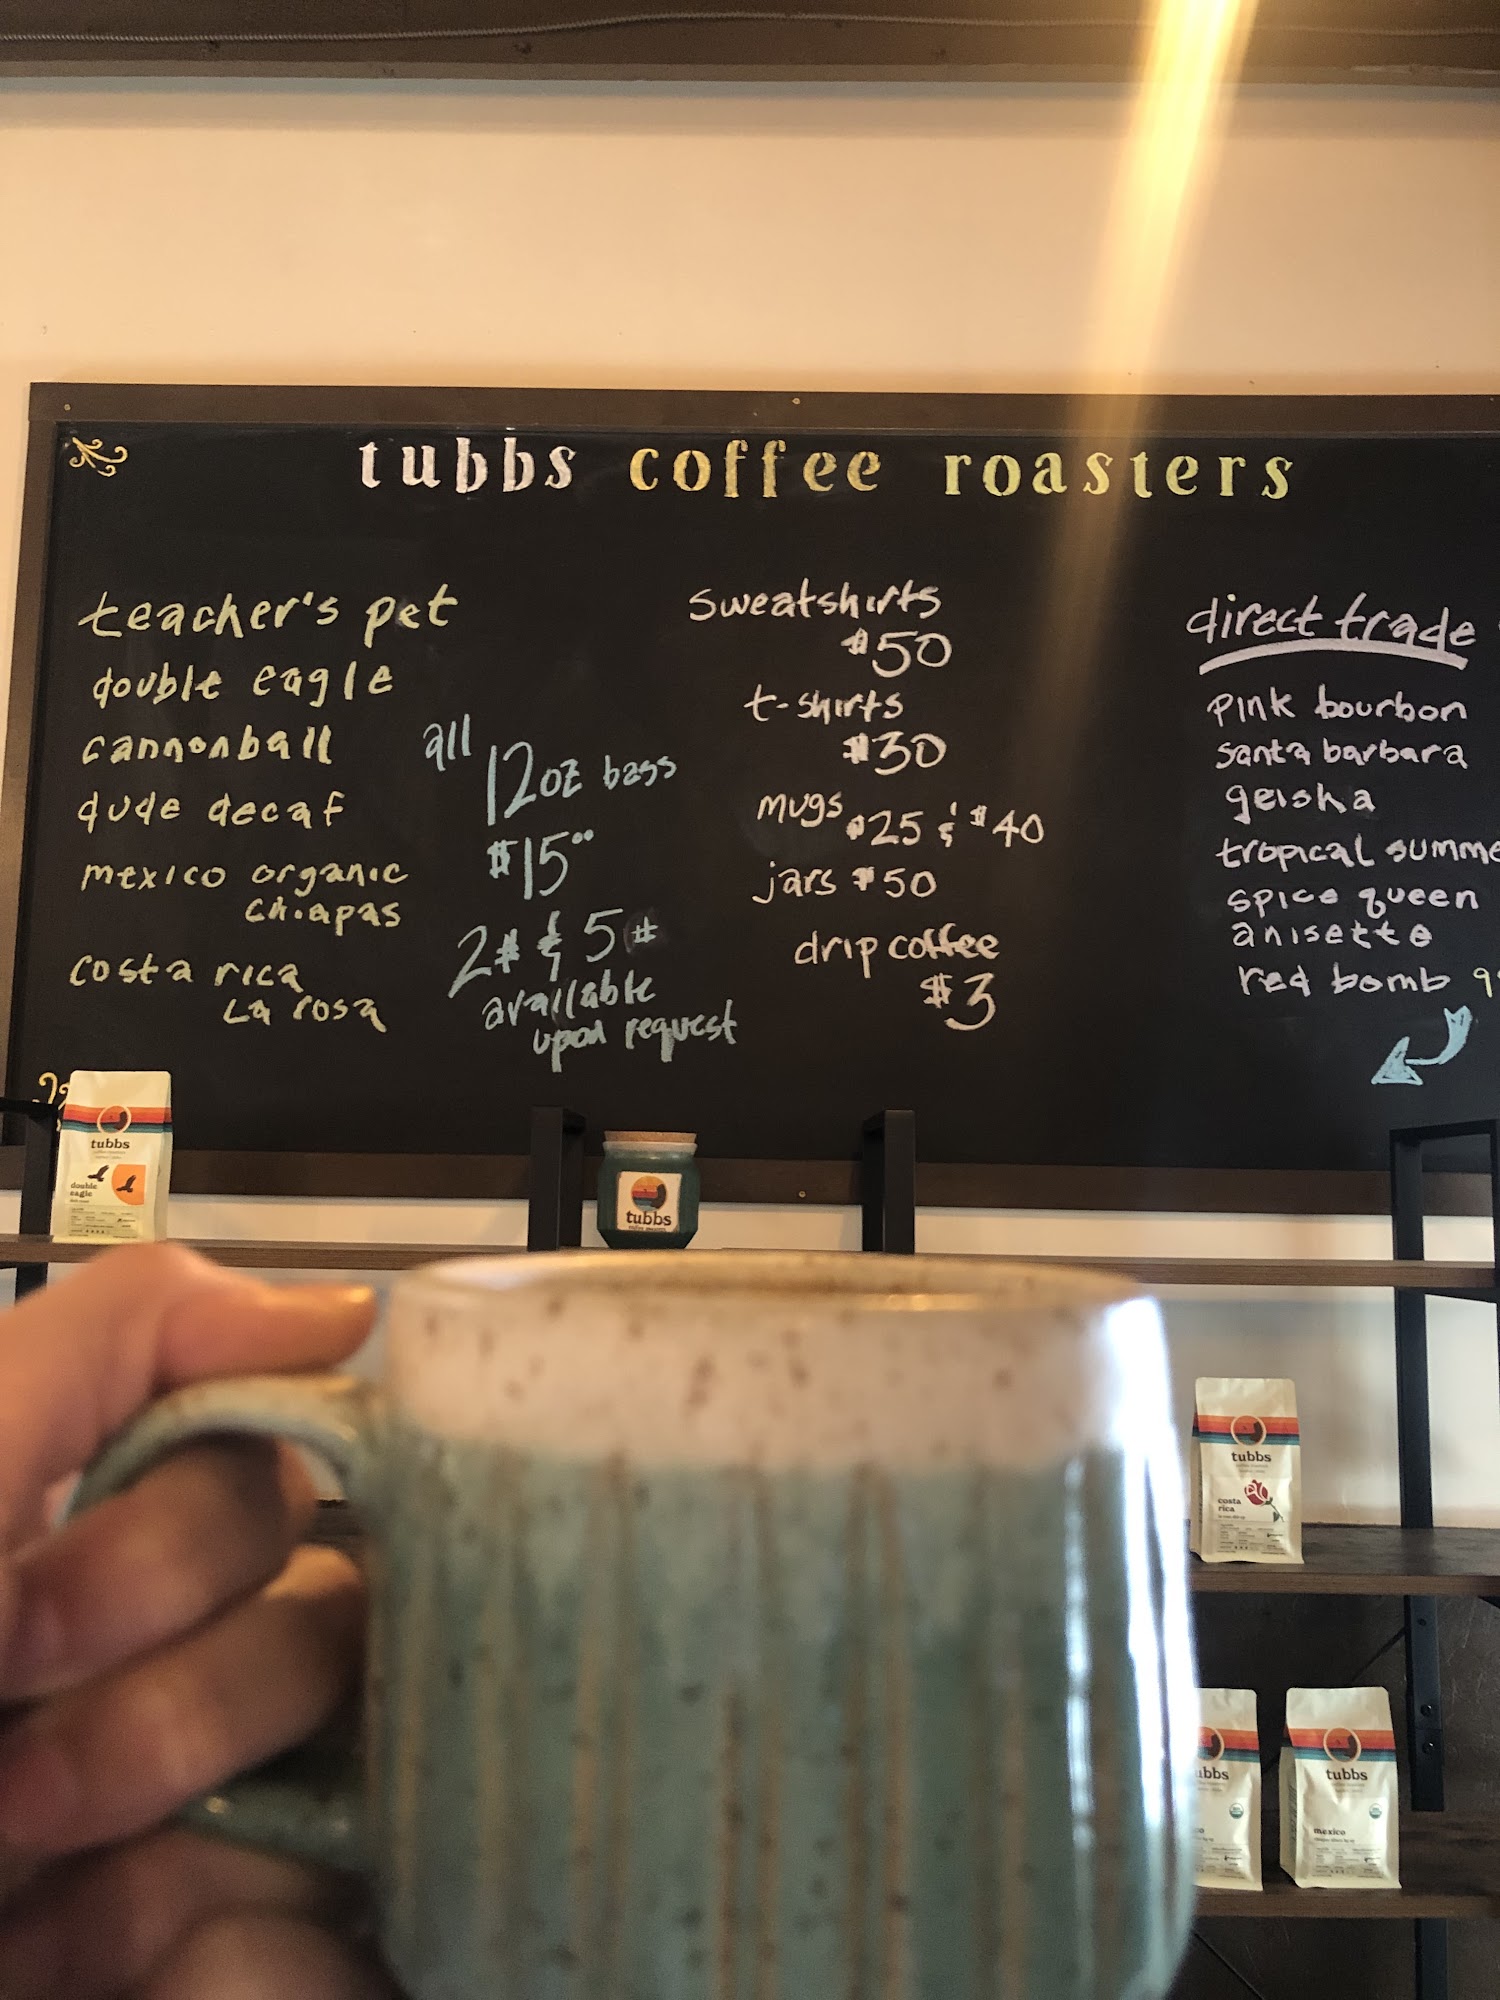 tubbs coffee roasters
teacher's pet
double eagle
cannonball
dude decaf
mexico organic
chiapas
costa rica
La rosa
all
12oz bags
$15⁰⁰
2# & 5#
available
upon request
sweatshirts
$50
t-shirts
$30
mugs $25 & $40
jars $50
drip coffee
$3
direct trade
pink bourbon
santa barbara
geisha
tropical summe
spice queen
anisette
red bomb
tubbs
double
eagle
tubbs
tubbs
costa
rica
ubbs
tubbs
mexico